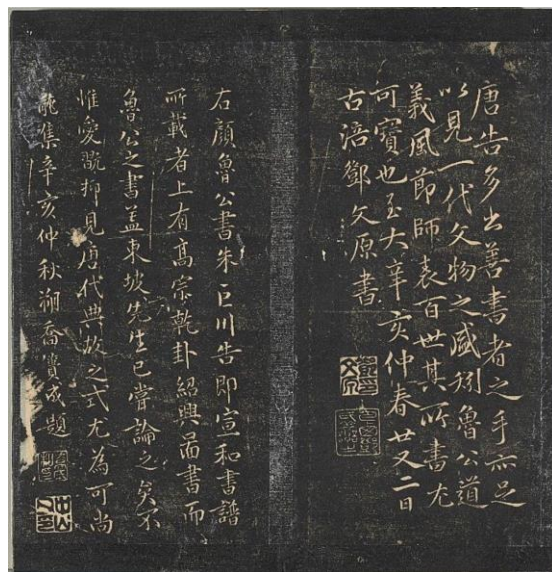 唐告多出善書者之手亦足
以見一代文物之盛矧魯公道
義風節師表百世其所書尤
可寶也至大辛亥仲春廿又二日
古涪鄧文原書
右顏魯公書朱巨川告即宣和書譜
所載者上有高宗乾卦紹興啚書而
魯公之書蓋東坡先生已嘗論之矣不
惟愛翫抑見唐代典故之式尤為可尚
集辛亥仲秋朔喬簣成題